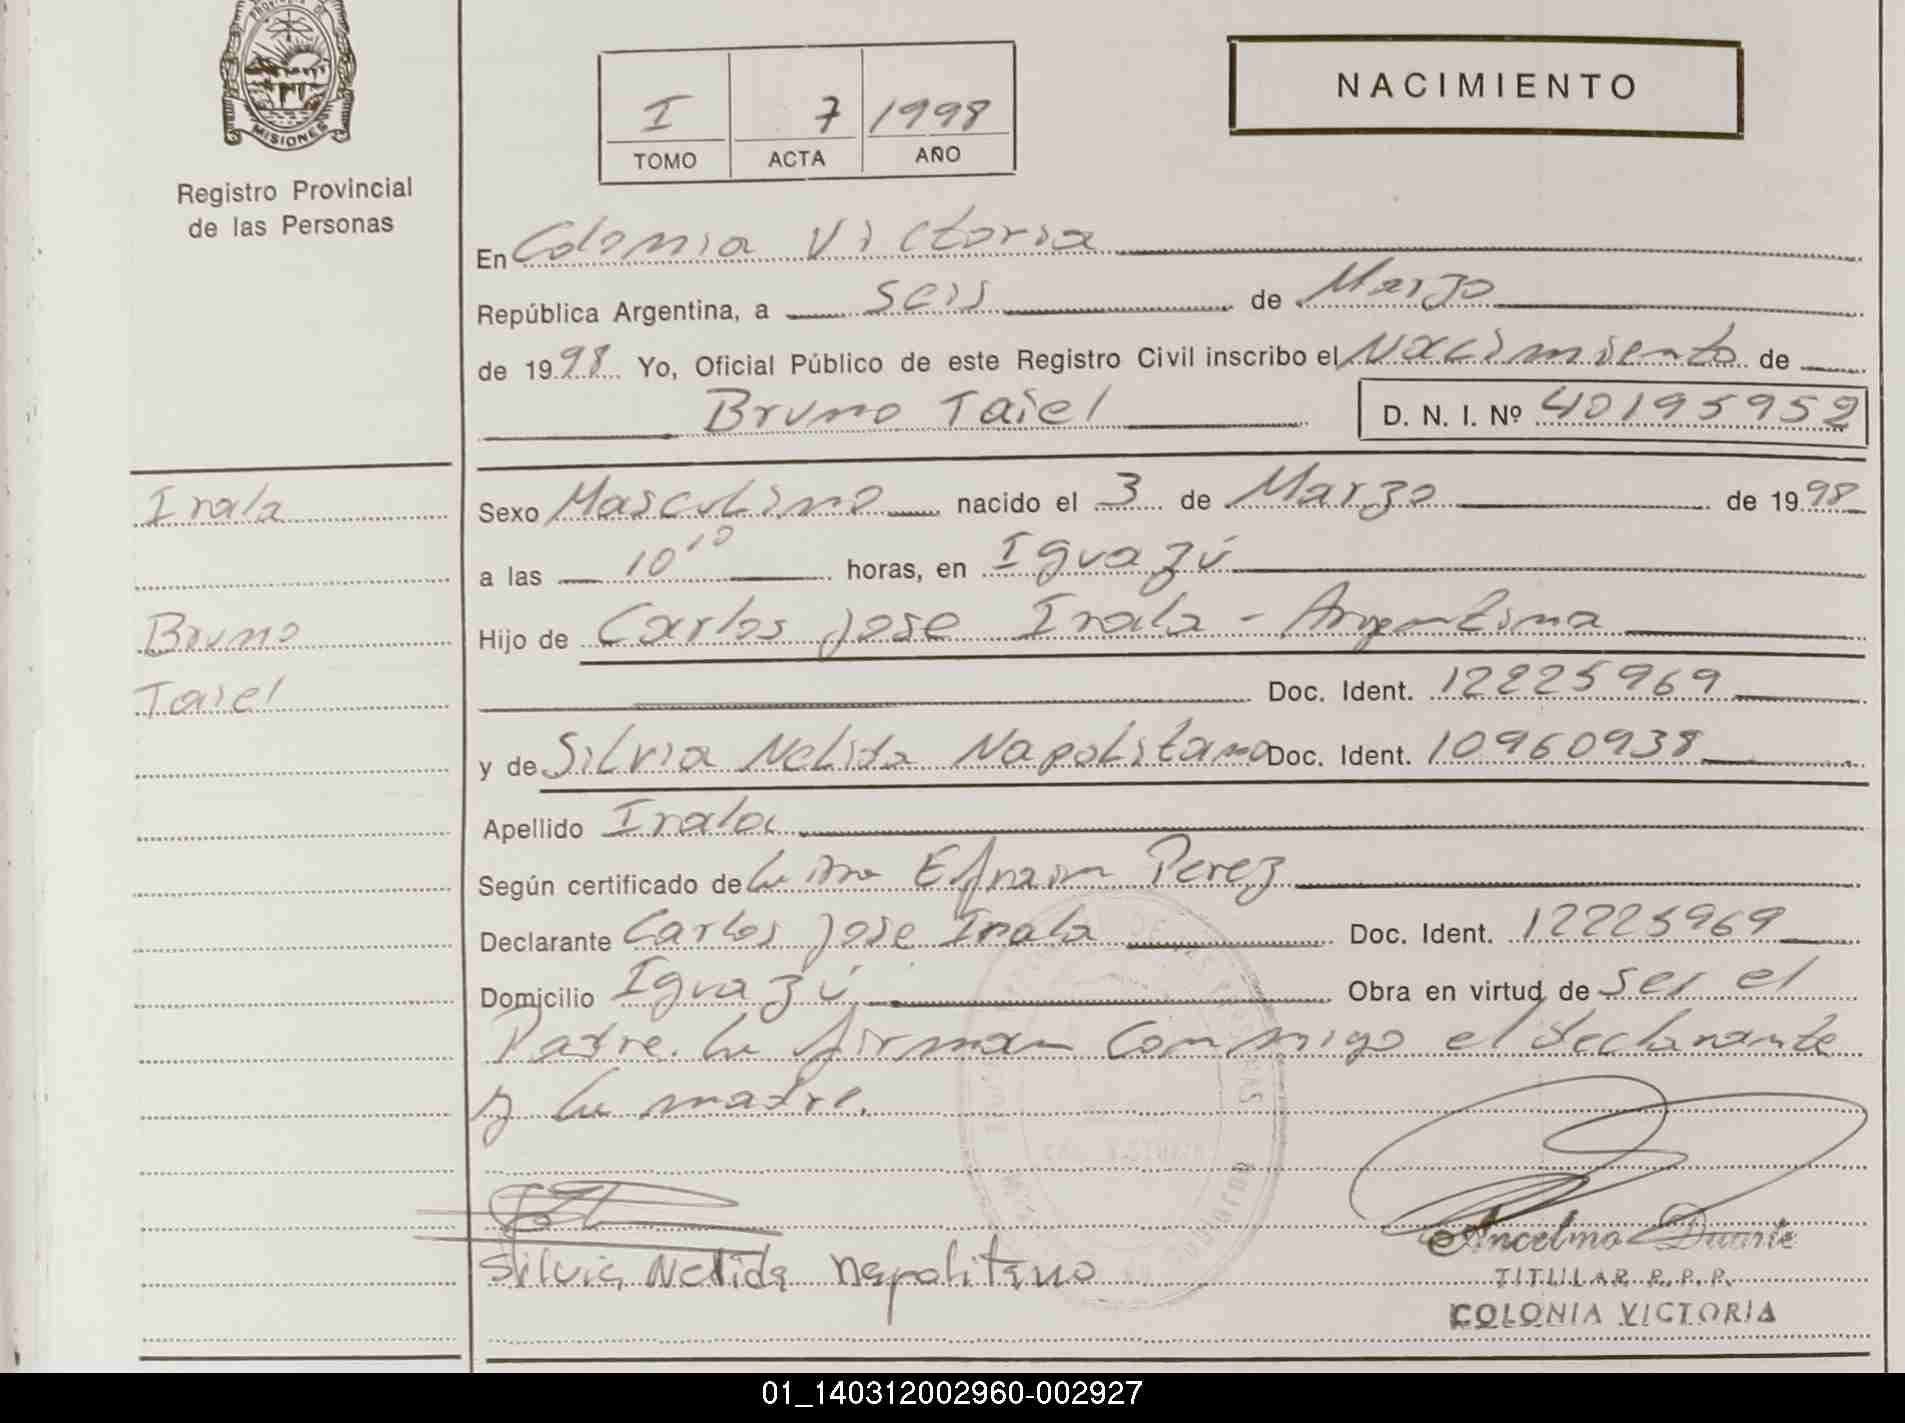 PROVINCIA DE
MISIONES
Registro Provincial
de las Personas
I 7 1998
TOMO ACTA AÑO
NACIMIENTO
En Colonia Victoria
República Argentina, a seis de Marzo
de 1998 Yo, Oficial Público de este Registro Civil inscribo el Nacimiento de
Bruno Taiel D. N. I. Nº 40195952
Irala
Bruno
Taiel
Sexo Masculino nacido el 3 de Marzo de 1998
a las 10 10 horas, en Iguazú
Hijo de Carlos jose Irala - Argentina
Doc. Ident. 12225969
y de Silvia Nelida Napolitano Doc. Ident. 10960938
Apellido Irala
Según certificado de Efraim Perez
Declarante Carlos jose Irala Doc. Ident. 12225969
Domicilio Iguazú Obra en virtud de ser el
Padre. firman conmigo el declarante
y la madre.
COL. VICTORIA
Silvia Nelida Napolitano
Ancelmo Duarte
TITULAR R. P. P.
COLONIA VICTORIA
01_140312002960-002927